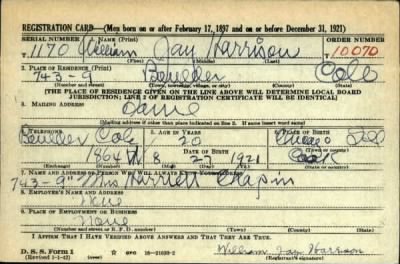 REGISTRATION CARD—(Men born on or after February 17, 1897 and on or before December 31, 1921)
SERIAL NUMBER 1. NAME (Print) ORDER NUMBER
1170 William Jay Harrison 10070
(First) (Middle) (Last)
2. PLACE OF RESIDENCE (Print)
743-9 Boulder Colo
(Number and street) (Town, township, village, or city) (County) (State)
[THE PLACE OF RESIDENCE GIVEN ON THE LINE ABOVE WILL DETERMINE LOCAL BOARD
JURISDICTION; LINE 2 OF REGISTRATION CERTIFICATE WILL BE IDENTICAL]
3. MAILING ADDRESS
Same
[Mailing address if other than place indicated on line 2. If same insert word same]
4. TELEPHONE 5. AGE IN YEARS 6. PLACE OF BIRTH
Boulder Colo 20 Chicago Ill
DATE OF BIRTH (Town or county)
1864 W 8 27 1921 Cook
(Exchange) (Number) (Mo.) (Day) (Yr.) (State or country)
7. NAME AND ADDRESS OF PERSON WHO WILL ALWAYS KNOW YOUR ADDRESS
743-9" Mrs Harriett Chapin
8. EMPLOYER'S NAME AND ADDRESS
None
9. PLACE OF EMPLOYMENT OR BUSINESS
None
(Number and street or R. F. D. number) (Town) (County) (State)
I AFFIRM THAT I HAVE VERIFIED ABOVE ANSWERS AND THAT THEY ARE TRUE.
D. S. S. Form 1
(Revised 1-1-42) GPO 16—21630-2 William Jay Harrison